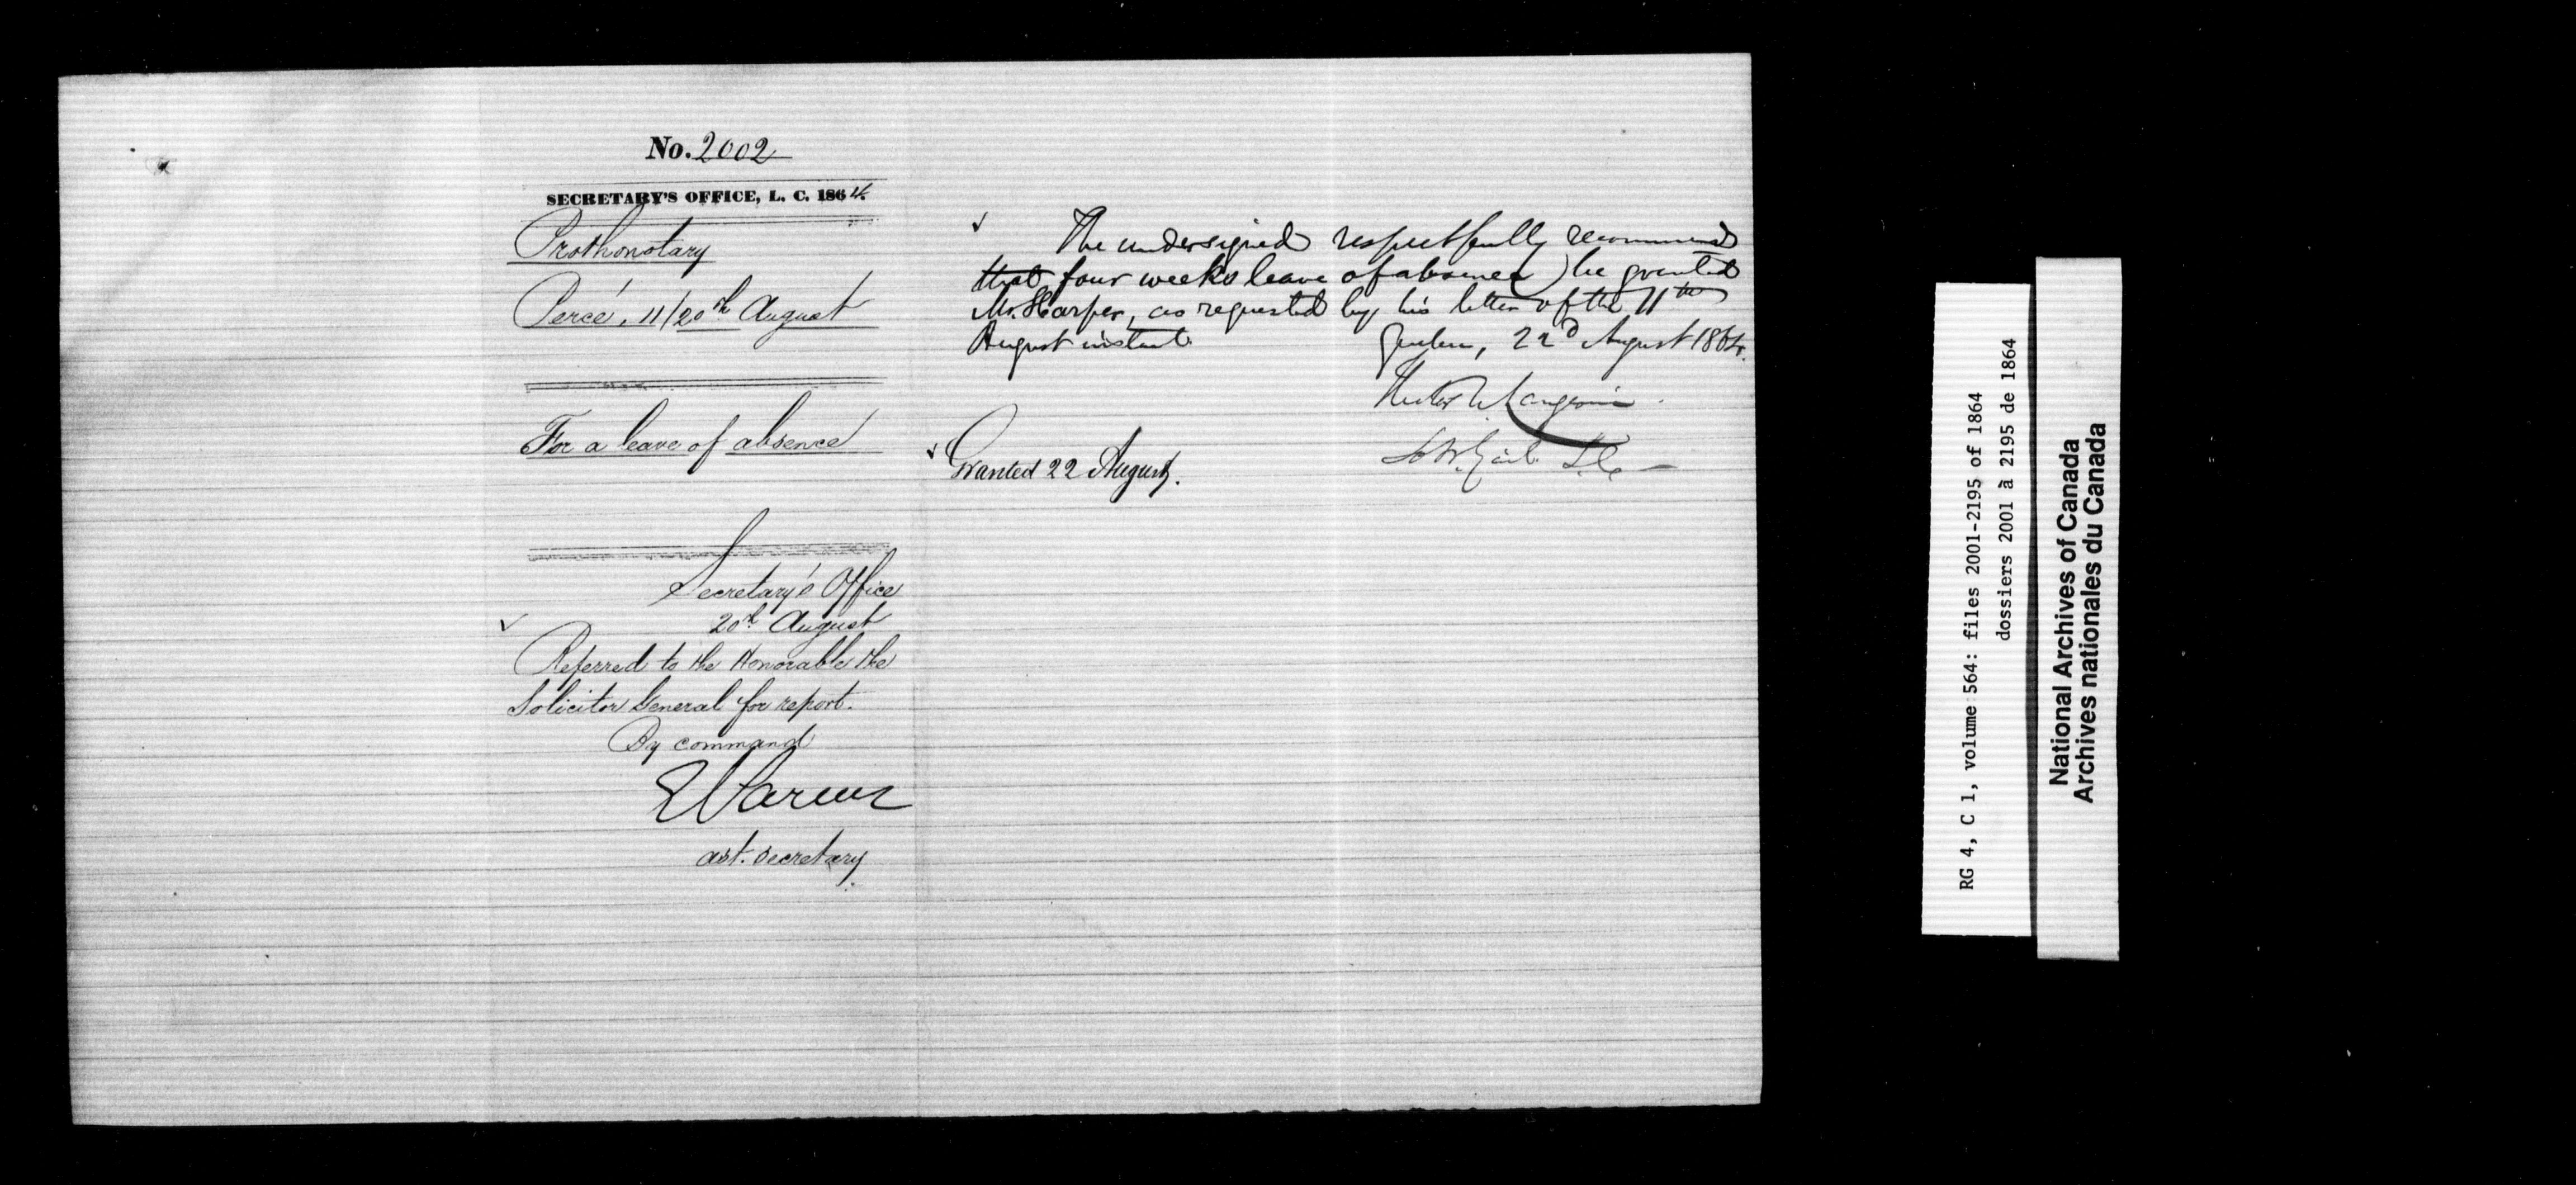 No. 2002
SECRETARY'S OFFICE, L. C. 1864.
Prothonotary
Percé, 11/20th August
For a leave of absence
Secretary's Office
20th August
Referred to the Honorable the
Solicitor General for report.
By command
ast. Secretary
The undersigned respectfully recommends
that four weeks leave of absence be granted
Mr. Harper, as requested by his letter of the 11th
August instant.
Quebec, 22d August 1864.
Hector L. Langevin
Granted 22 August.
RG 4, C 1, volume 564: files 2001-2195 of 1864
dossiers 2001 à 2195 de 1864
National Archives of Canada
Archives nationales du Canada